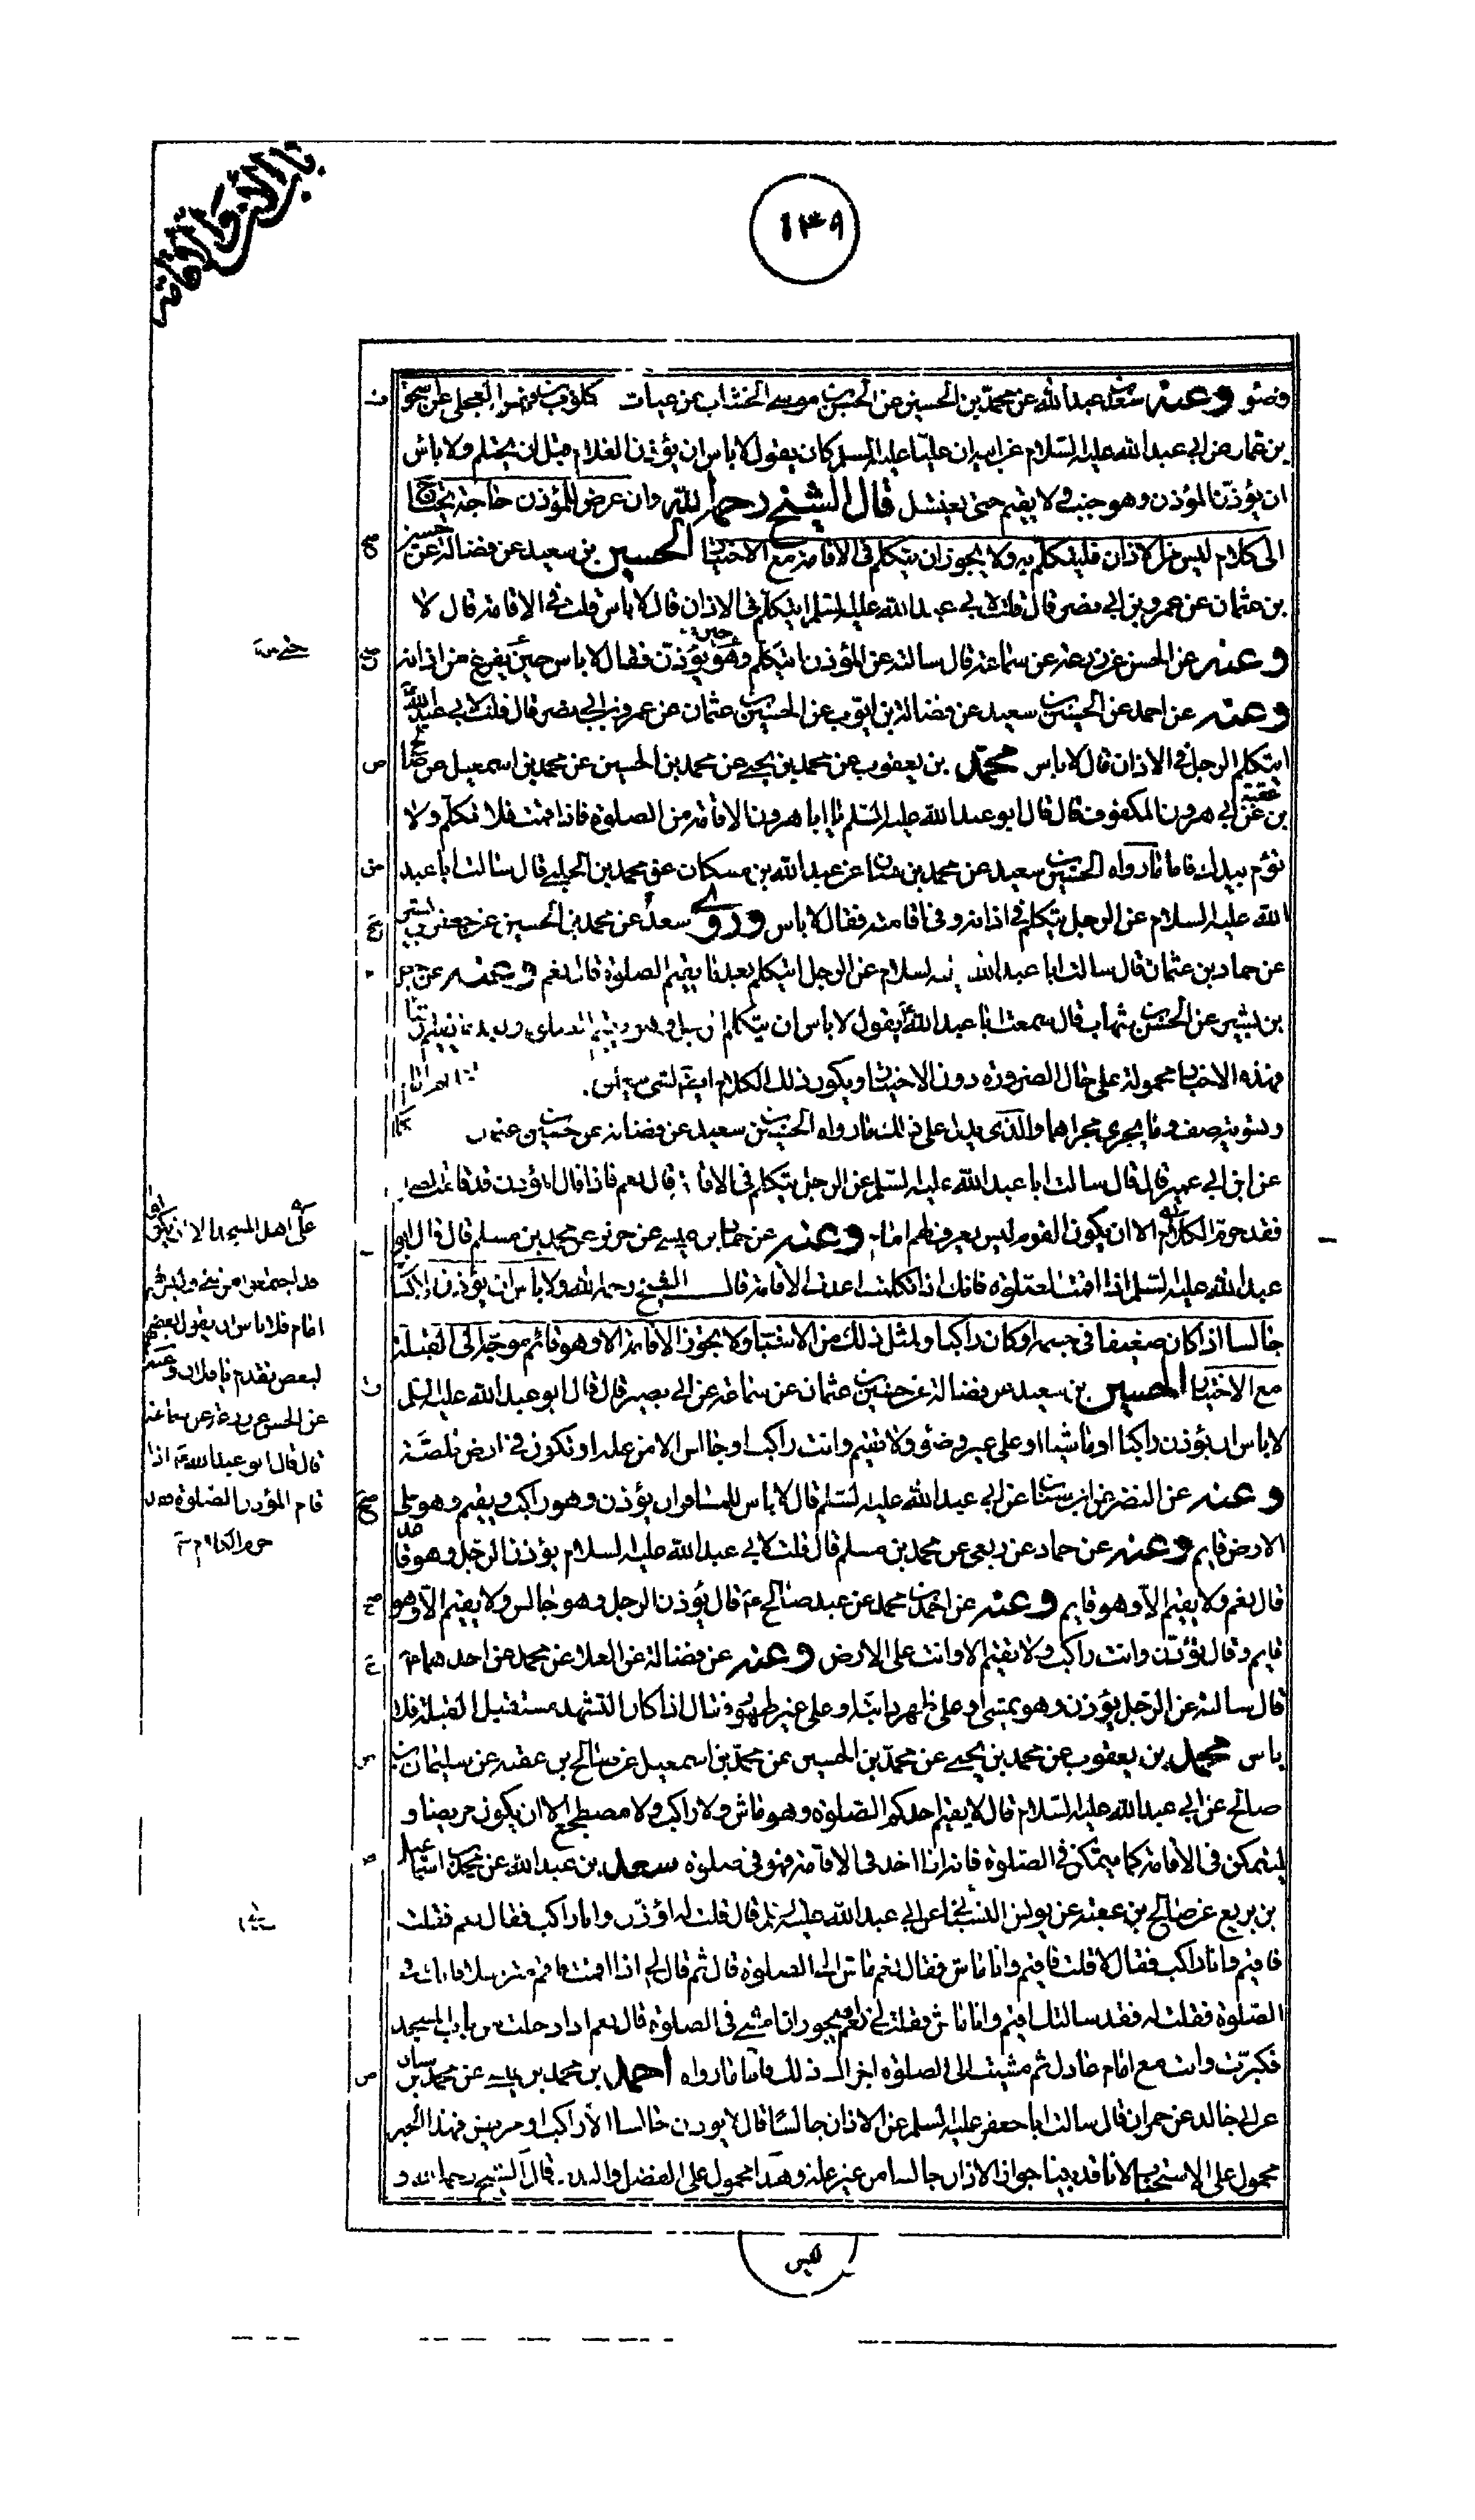 باب الاذان والاقامة
١٣٩
وضوء وعنه سعد بن عبدالله عن محمد بن الحسين عن الحسن بن موسى الخشاب عن غياث كلوب بن فيهس البجلي عن اسحق
بن عمار عن ابي عبد الله عليه السلام عن ابيه ان عليا عليه السلم كان يقول لا باس ان يؤذن الغلام قبل ان يحتلم ولا باس
ان يؤذن المؤذن وهو جنب ولا يقيم حتى يغتسل قال الشيخ رحمه الله وان عرض للمؤذن حاجة يحتاج
الى كلام ليس من الاذان فليتكلم به ولا يجوز ان يتكلم في الاقامة مع الاختيار الحسين بن سعيد عن فضالة عن حسين
بن عثمان عن عمرو بن ابي نصر قال قلت لابي عبد الله عليه السلم ايتكلم في الاذان قال لا باس قلت في الاقامة قال لا
وعنه عن الحسن عن زرعة عن سماعة قال سالته عن المؤذن ايتكلم وهو يؤذن فقال لا باس حين يفرغ من اذانه
وعنه عن احمد عن الحسين بن سعيد عن فضالة بن ايوب عن الحسين بن عثمان عن عمرو بن ابي نصر قال قلت لابي عبد الله
ايتكلم الرجل في الاذان قال لا باس محمد بن يعقوب عن محمد بن يحيى عن محمد بن الحسين عن محمد بن اسمعيل عن صالح
بن عقبة عن ابي هرون المكفوف قال قال ابو عبد الله عليه السلم يا ابا هرون الاقامة من الصلوة فاذا اقمت فلا تكلم ولا
تؤم بيدك فاما ما رواه الحسين بن سعيد عن محمد بن سنان عن عبد الله بن مسكان عن محمد بن الحلبي قال سالت ابا عبد
الله عليه السلام عن الرجل يتكلم في اذانه وفي اقامته فقال لا باس وروى سعد عن محمد بن الحسين عن جعفر بن بشير
عن حماد بن عثمان قال سالت ابا عبد الله السلام عن الرجل ايتكلم بعد ما يقيم الصلوة قال نعم وعنه عن جعفر
بن بشير عن الحسن بن شهاب قال سمعت ابا عبد الله يقول لا باس ان يتكلم الرجل وهو يقيم الصلوة وبعد ما يقيم
فهذه الاخبار محمولة على حال الضرورة دون الاختيار ويكون ذلك الكلام
وتسوية صف وما يجري مجراهما والذي يدل على ذلك ما رواه الحسين بن سعيد عن فضالة عن حسين بن عثمان
عن ابن ابي عمير قال قال سالت ابا عبد الله عليه السلم عن الرجل يتكلم في الاقامة قال نعم فاذا قال المؤذن قد قامت الصلوة
فقد حرم الكلام الا ان يكون القوم ليس يعرف لهم امام وعنه عن حماد بن عيسى عن حريز عن محمد بن مسلم قال قال ابو
عبد الله عليه السلم اذا اقمت الصلوة فانك اذا تكلمت اعدت الاقامة قال الشيخ رحمه الله ولا باس ان يؤذن راكبا
جالسا اذا كان ضعيفا في جسمه او كان راكبا ولمثل ذلك من الاسباب ولا يجوز الاقامة الا وهو قائم موجه الى القبلة
مع الاختيار الحسين بن سعيد عن فضالة عن حسين بن عثمان عن سماعة عن ابي بصير قال قال ابو عبد الله عليه السلم
لا باس ان يؤذن راكبا او ماشيا او على غير وضوء ولا تقيم وانت راكب او جالس الا من علة او تكون في ارض ملصة
وعنه عن النضر عن ابن سنان عن ابي عبد الله عليه السلم قال لا باس للمسافر ان يؤذن وهو راكب ويقيم وهو على
الارض قايم وعنه عن حماد عن ربعي عن محمد بن مسلم قال قلت لابي عبد الله عليه السلام يؤذن الرجل وهو قاعد
قال نعم ولا يقيم الا وهو قايم وعنه عن احمد بن محمد عن عبد صالح ع قال يؤذن الرجل وهو جالس ولا يقيم الا وهو
قايم وقال تؤذن وانت راكب ولا تقيم الا وانت على الارض وعنه عن فضالة عن العلا عن محمد عن احدهما ع
قال سالته عن الرجل يؤذن وهو يمشي او على ظهر دابته او على غير طهور فقال اذا كان التشهد مستقبل القبلة فلا
باس محمد بن يعقوب عن محمد بن يحيى عن محمد بن الحسين عن محمد بن اسمعيل عن صالح بن عقبة عن سليمان بن
صالح عن ابي عبد الله عليه السلام قال لا يقيم احدكم الصلوة وهو ماش ولا راكب ولا مضطجع الا ان يكون مريضا و
ليتمكن في الاقامة كما يتمكن في الصلوة فانه اذا اخذ في الاقامة فهو في صلوة سعد بن عبد الله عن محمد بن اسماعيل
بن بزيع عن صالح بن عقبة عن يونس الشيباني عن ابي عبد الله عليه السلم قال قلت له اؤذن وانا راكب فقال نعم فقلت
فاقيم وانا راكب فقال لا قلت فاقيم وانا ماش فقال نعم ماش الى الصلوة قال ثم قال لي اذا اقمت فاقم مترسلا فانك في
الصلوة فقلت له فقد سالتك اقيم وانا ماش فقلت لي نعم افيجوز ان امشي في الصلوة قال نعم اذا دخلت من باب المسجد
فكبرت وانت مع امام عادل ثم مشيت الى الصلوة اجزاك ذلك فاما ما رواه احمد بن محمد بن عن محمد بن سنان
عن ابي خالد عن حمران قال سالت ابا جعفر عليه السلم عن الاذان جالسا قال لا يؤذن جالسا الا راكب او مريض فهذا الخبر
محمول على الاستحباب لانا قد بينا جواز الاذان جالسا من غير علة وهذا محمول على الفضل والندب قال الشيخ رحمه الله و
على اهل المسجد الا ان يكونوا
قد اجتمعوا من شتى وليس لهم
امام فلا باس ان يقول بعضهم
لبعض تقدم يا فلان وعنه
عن الحسن عن زرعة عن سماعة
قال قال ابو عبد الله ع اذا
قام المؤذن الصلوة فقد
حرم الكلام